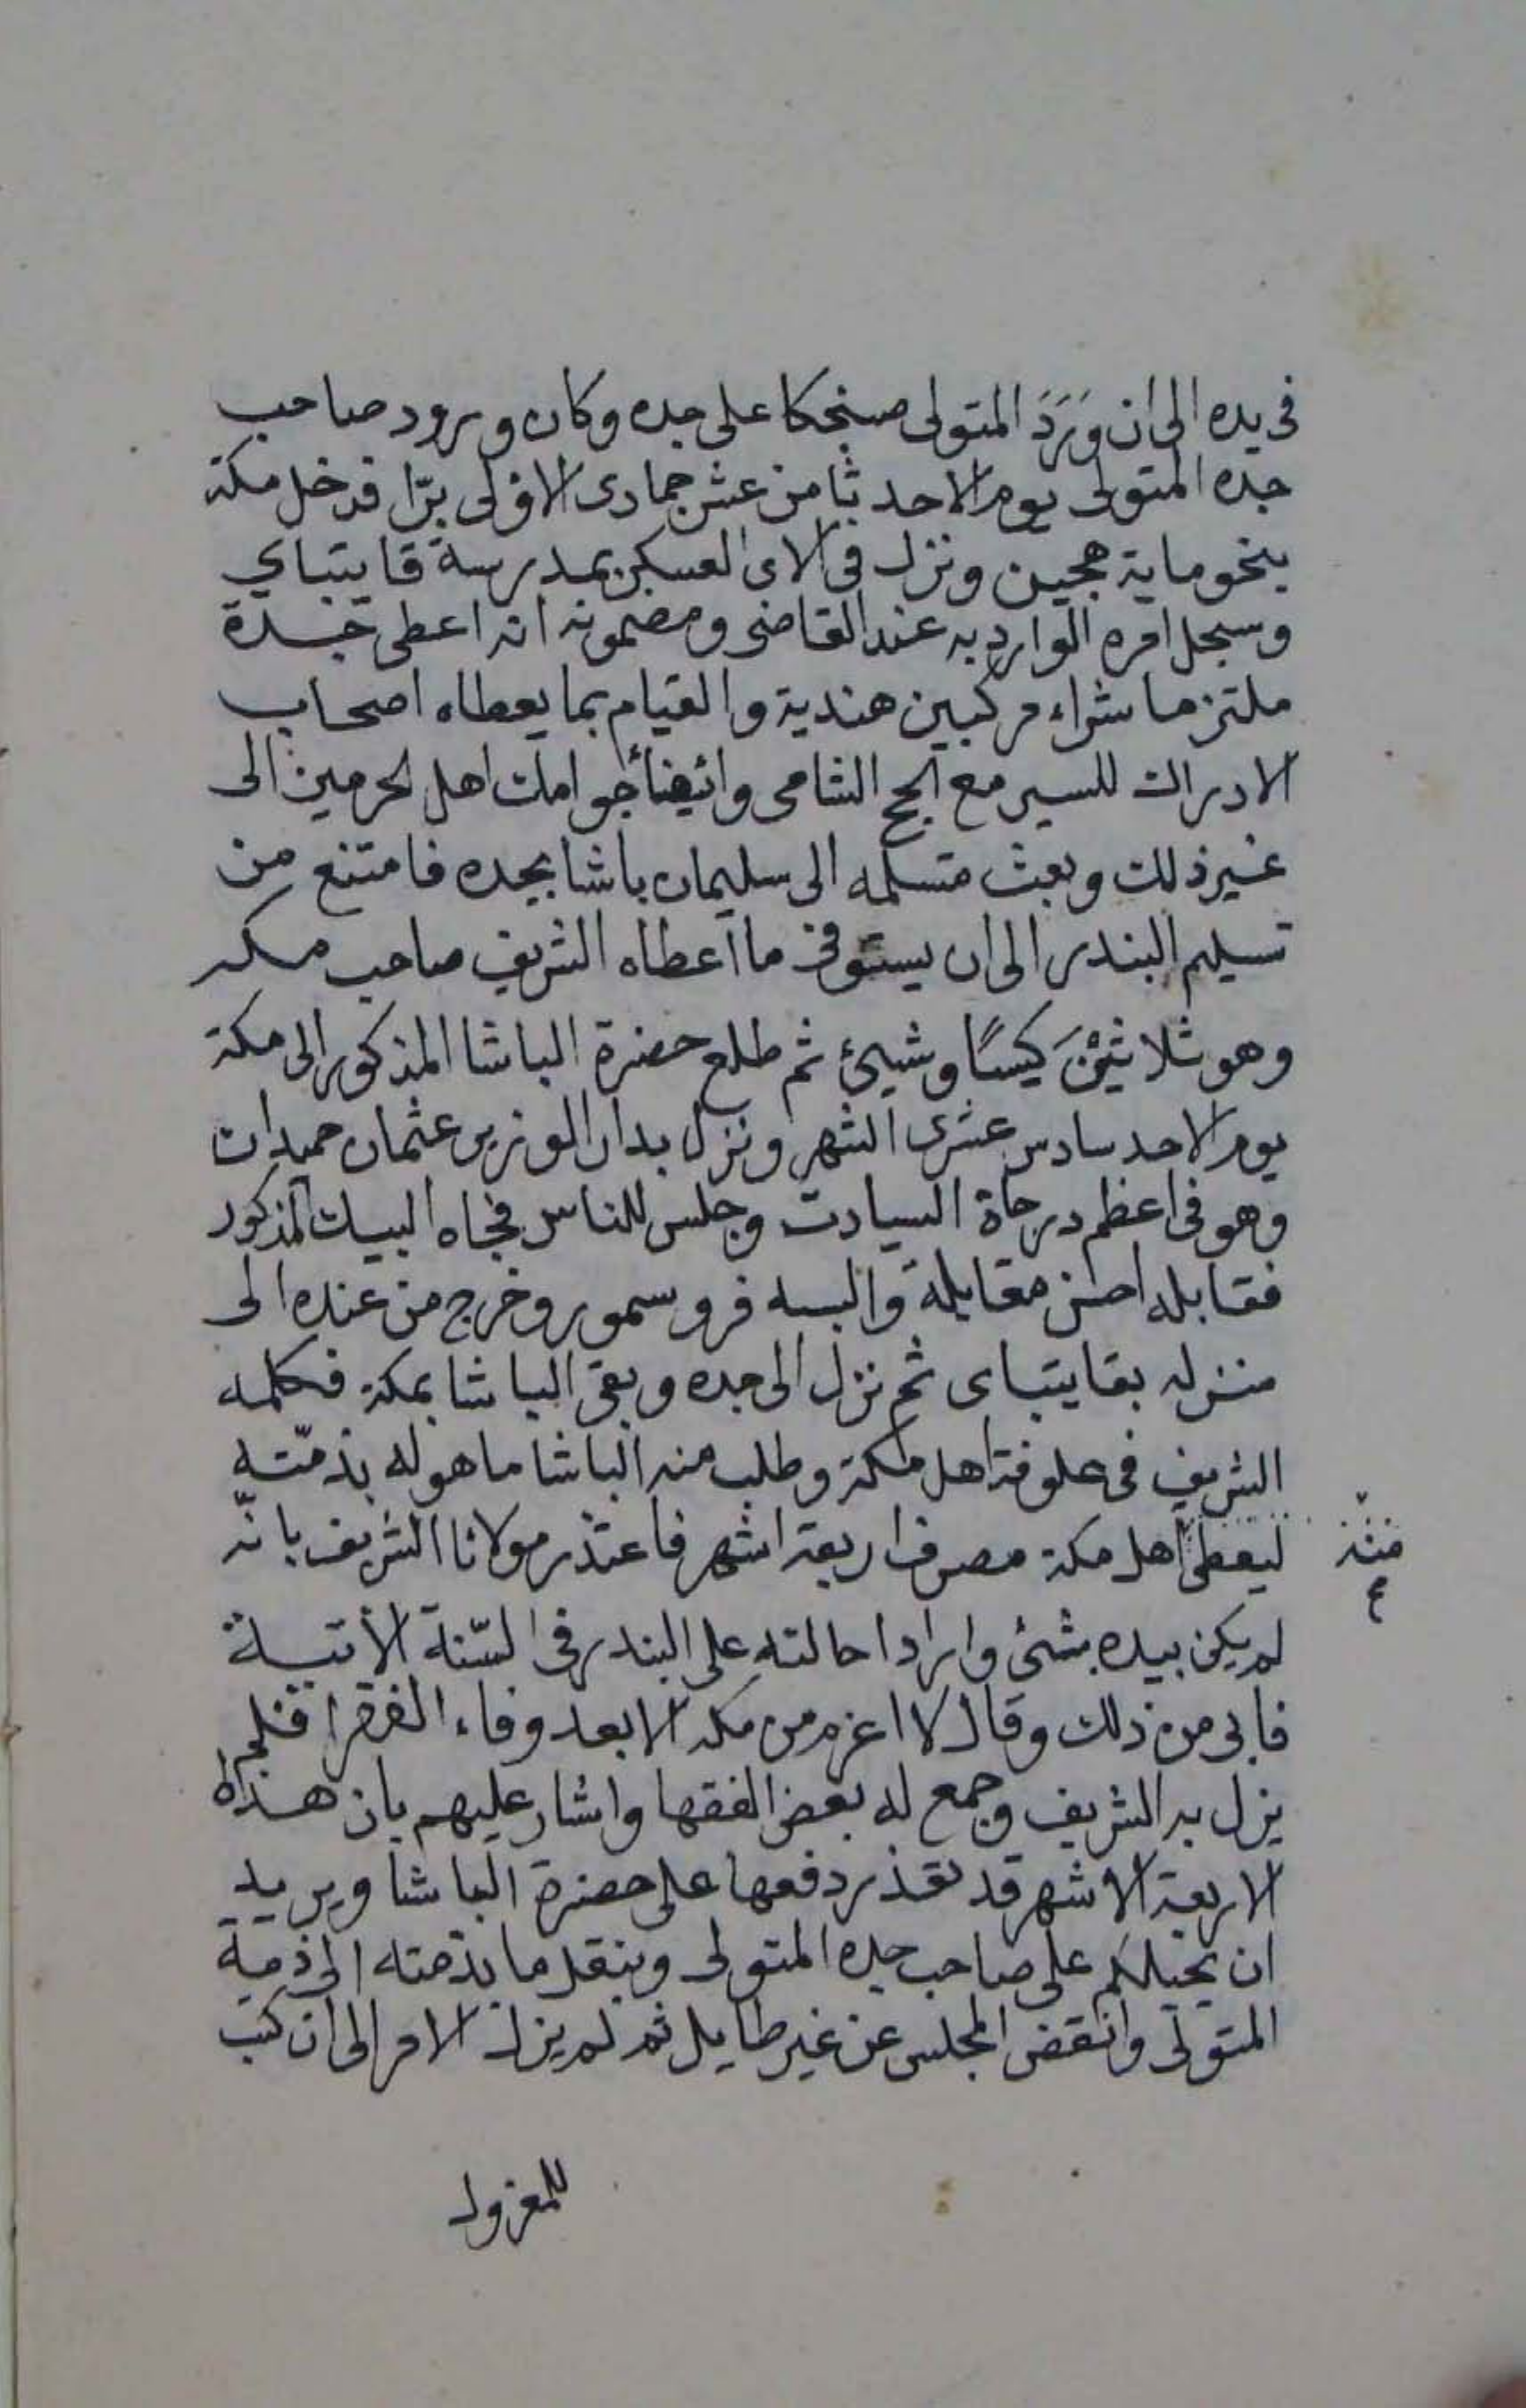 في يده الى ان وَرَدَ المتولى صنجكا على جده وكان ورود صاحب
جده المتولى يوم الاحد ثامن عشر جمادى الاولى برّا فدخل مكة
بنحو ماية هجين ونزل في الاى العسكر بمدرسة قايتباي
وسجل امره الوارد به عند القاضى ومضمونه انه اعطى جدة
ملتزما شراء مركبين هندية والقيام بما يعطاه اصحاب
الادراك للسير مع الحج الشامى وايضاً جوامك اهل الحرمين الى
غير ذلك وبعث متسلمه الى سليمان باشا بجده فامتنع من
تسليم البندر الى ان يستوفى ما اعطاه الشريف صاحب مكه
وهو ثلاثيْنَ كيسًا وشيئ ثم طلع حضرة الباشا المذكور الى مكة
يوم الاحد سادس عشرى الشهر ونزل بدار الوزير عثمان حميدان
وهو فى اعظم درجاة السيادت وجلس للناس فجاه البيك المذكور
فقابله احسن مقابلة والبسه فرو سمور وخرج من عنده الى
منزله بقايتباى ثم نزل الى جده وبقى الباشا بمكة فكلمه
الشريف فى علوفة اهل مكة وطلب منه الباشا ما هو له بذمّته
ليعطى اهل مكة مصرف اربعة اشهر فاعتذر مولانا الشريف بانّه
منه
ع
لم يكن بيده شئ واراد احالته على البندر فى السّنة الأتية
فابى من ذلك وقال لا اعزم من مكه الا بعد وفاء الفقرا فلم
يزل به الشريف وجمع له بعض الفقها واشار عليهم بان هذه
الاربعة الاشهر قد تعذر دفعها على حضرة الباشا ويريد
ان يحيلكم على صاحب جده المتولى وينقل ما بذمته الى ذمة
المتولى وانقض المجلس عن غير طايل ثم لم يزل الامر الى ان كتب
للمعزول